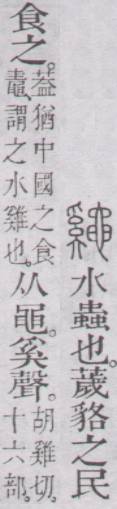 水蟲也。薉貉之民
食之。葢猶中國之食
鼃、謂之水雞也。从黽。奚聲。胡雞切。
十六部。